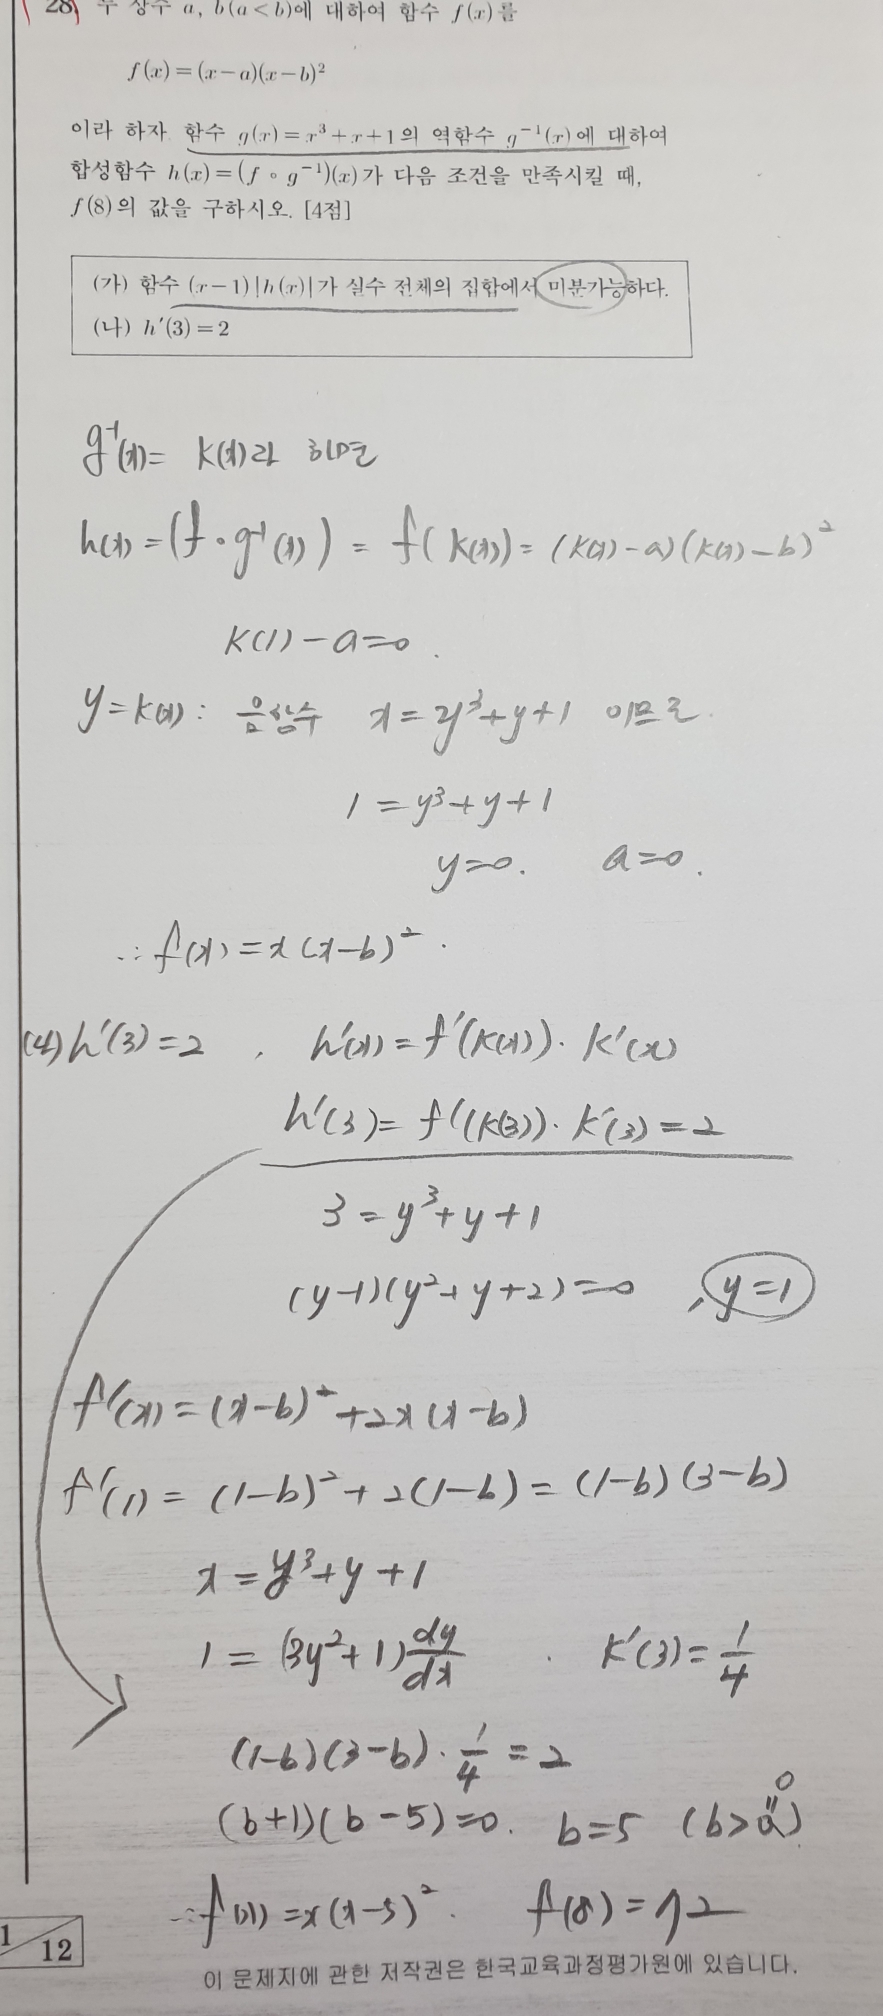 28) 두 상수 a, b(a<b)에 대하여 함수 f(x)를
f(x)=(x-a)(x-b)²
이라 하자 함수 g(x)=x³+x+1의 역함수 g⁻¹(x)에 대하여
합성함수 h(x)=(f∘g⁻¹)(x)가 다음 조건을 만족시킬 때,
f(8)의 값을 구하시오. [4점]
(가) 함수 (x-1)|h(x)|가 실수 전체의 집합에서 미분가능하다.
(나) h′(3)=2
g⁻¹(x)= k(x)라 하면
h(x)=(f∘g⁻¹(x)) = f(k(x))=(k(x)-a)(k(x)-b)²
k(1)-a=0.
y=k(x): 음함수 x=y³+y+1 이므로.
1=y³+y+1
y=0. a=0.
∴ f(x)=x(x-b)².
(나) h′(3)=2, h′(x)=f′(k(x))·k′(x)
h′(3)=f′(k(3))·k′(3)=2
3=y³+y+1
(y-1)(y²+y+2)=0, y=1
f′(x)=(x-b)²+2x(x-b)
f′(1)=(1-b)²+2(1-b)=(1-b)(3-b)
x=y³+y+1
1=(3y²+1)dy/dx. k′(3)=1/4
(1-b)(3-b)·1/4=2
0
(b+1)(b-5)=0. b=5 (b>a)
∴ f(x)=x(x-5)². f(8)=72
1/12
이 문제지에 관한 저작권은 한국교육과정평가원에 있습니다.